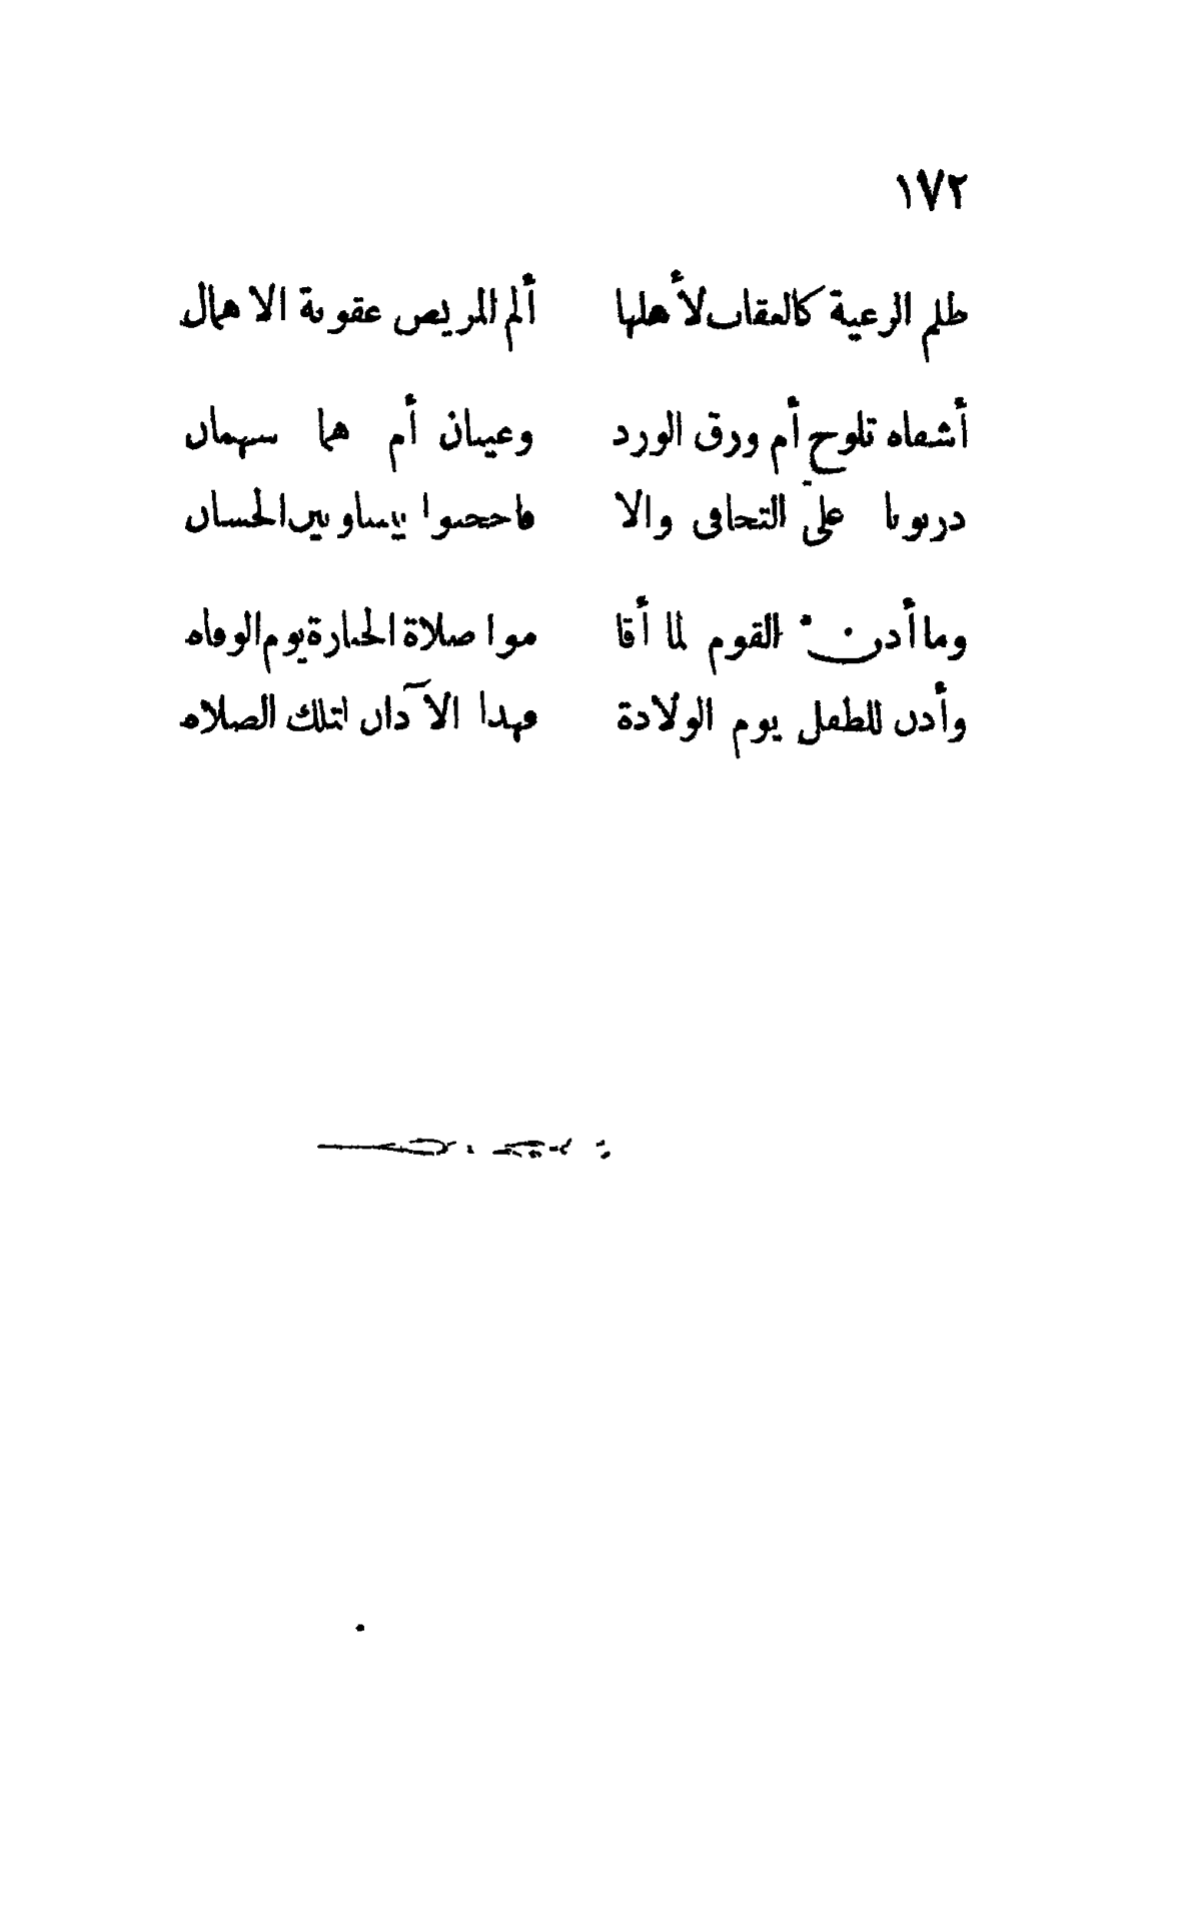 ١٧٢
ظلم الرعية كالعقاب لأهلها ألم المريض عقوبة الاهمال
أشفاه تلوح أم ورق الورد وعينان أم هما سهمان
دربونا على التجافى والا فاحجبوا بيننا وبين الحسان
وما أذن القوم لما أقا موا صلاة الجنازة يوم الوفاه
وأذن للطفل يوم الولادة فهذا الآذان لتلك الصلاه